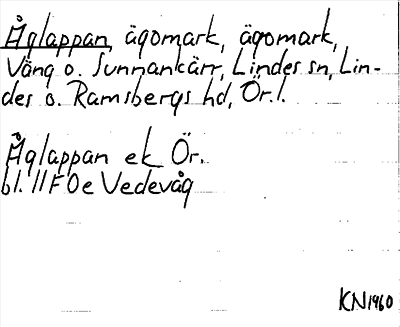 Åglappan, ägomark, ägomark,
Väng o. Sunnankärr, Lindes sn, Lin-
des o. Ramsbergs hd, Ör. l.
Åglappan ek Ör.
bl. 11F0e Vedevåg
KN 1960